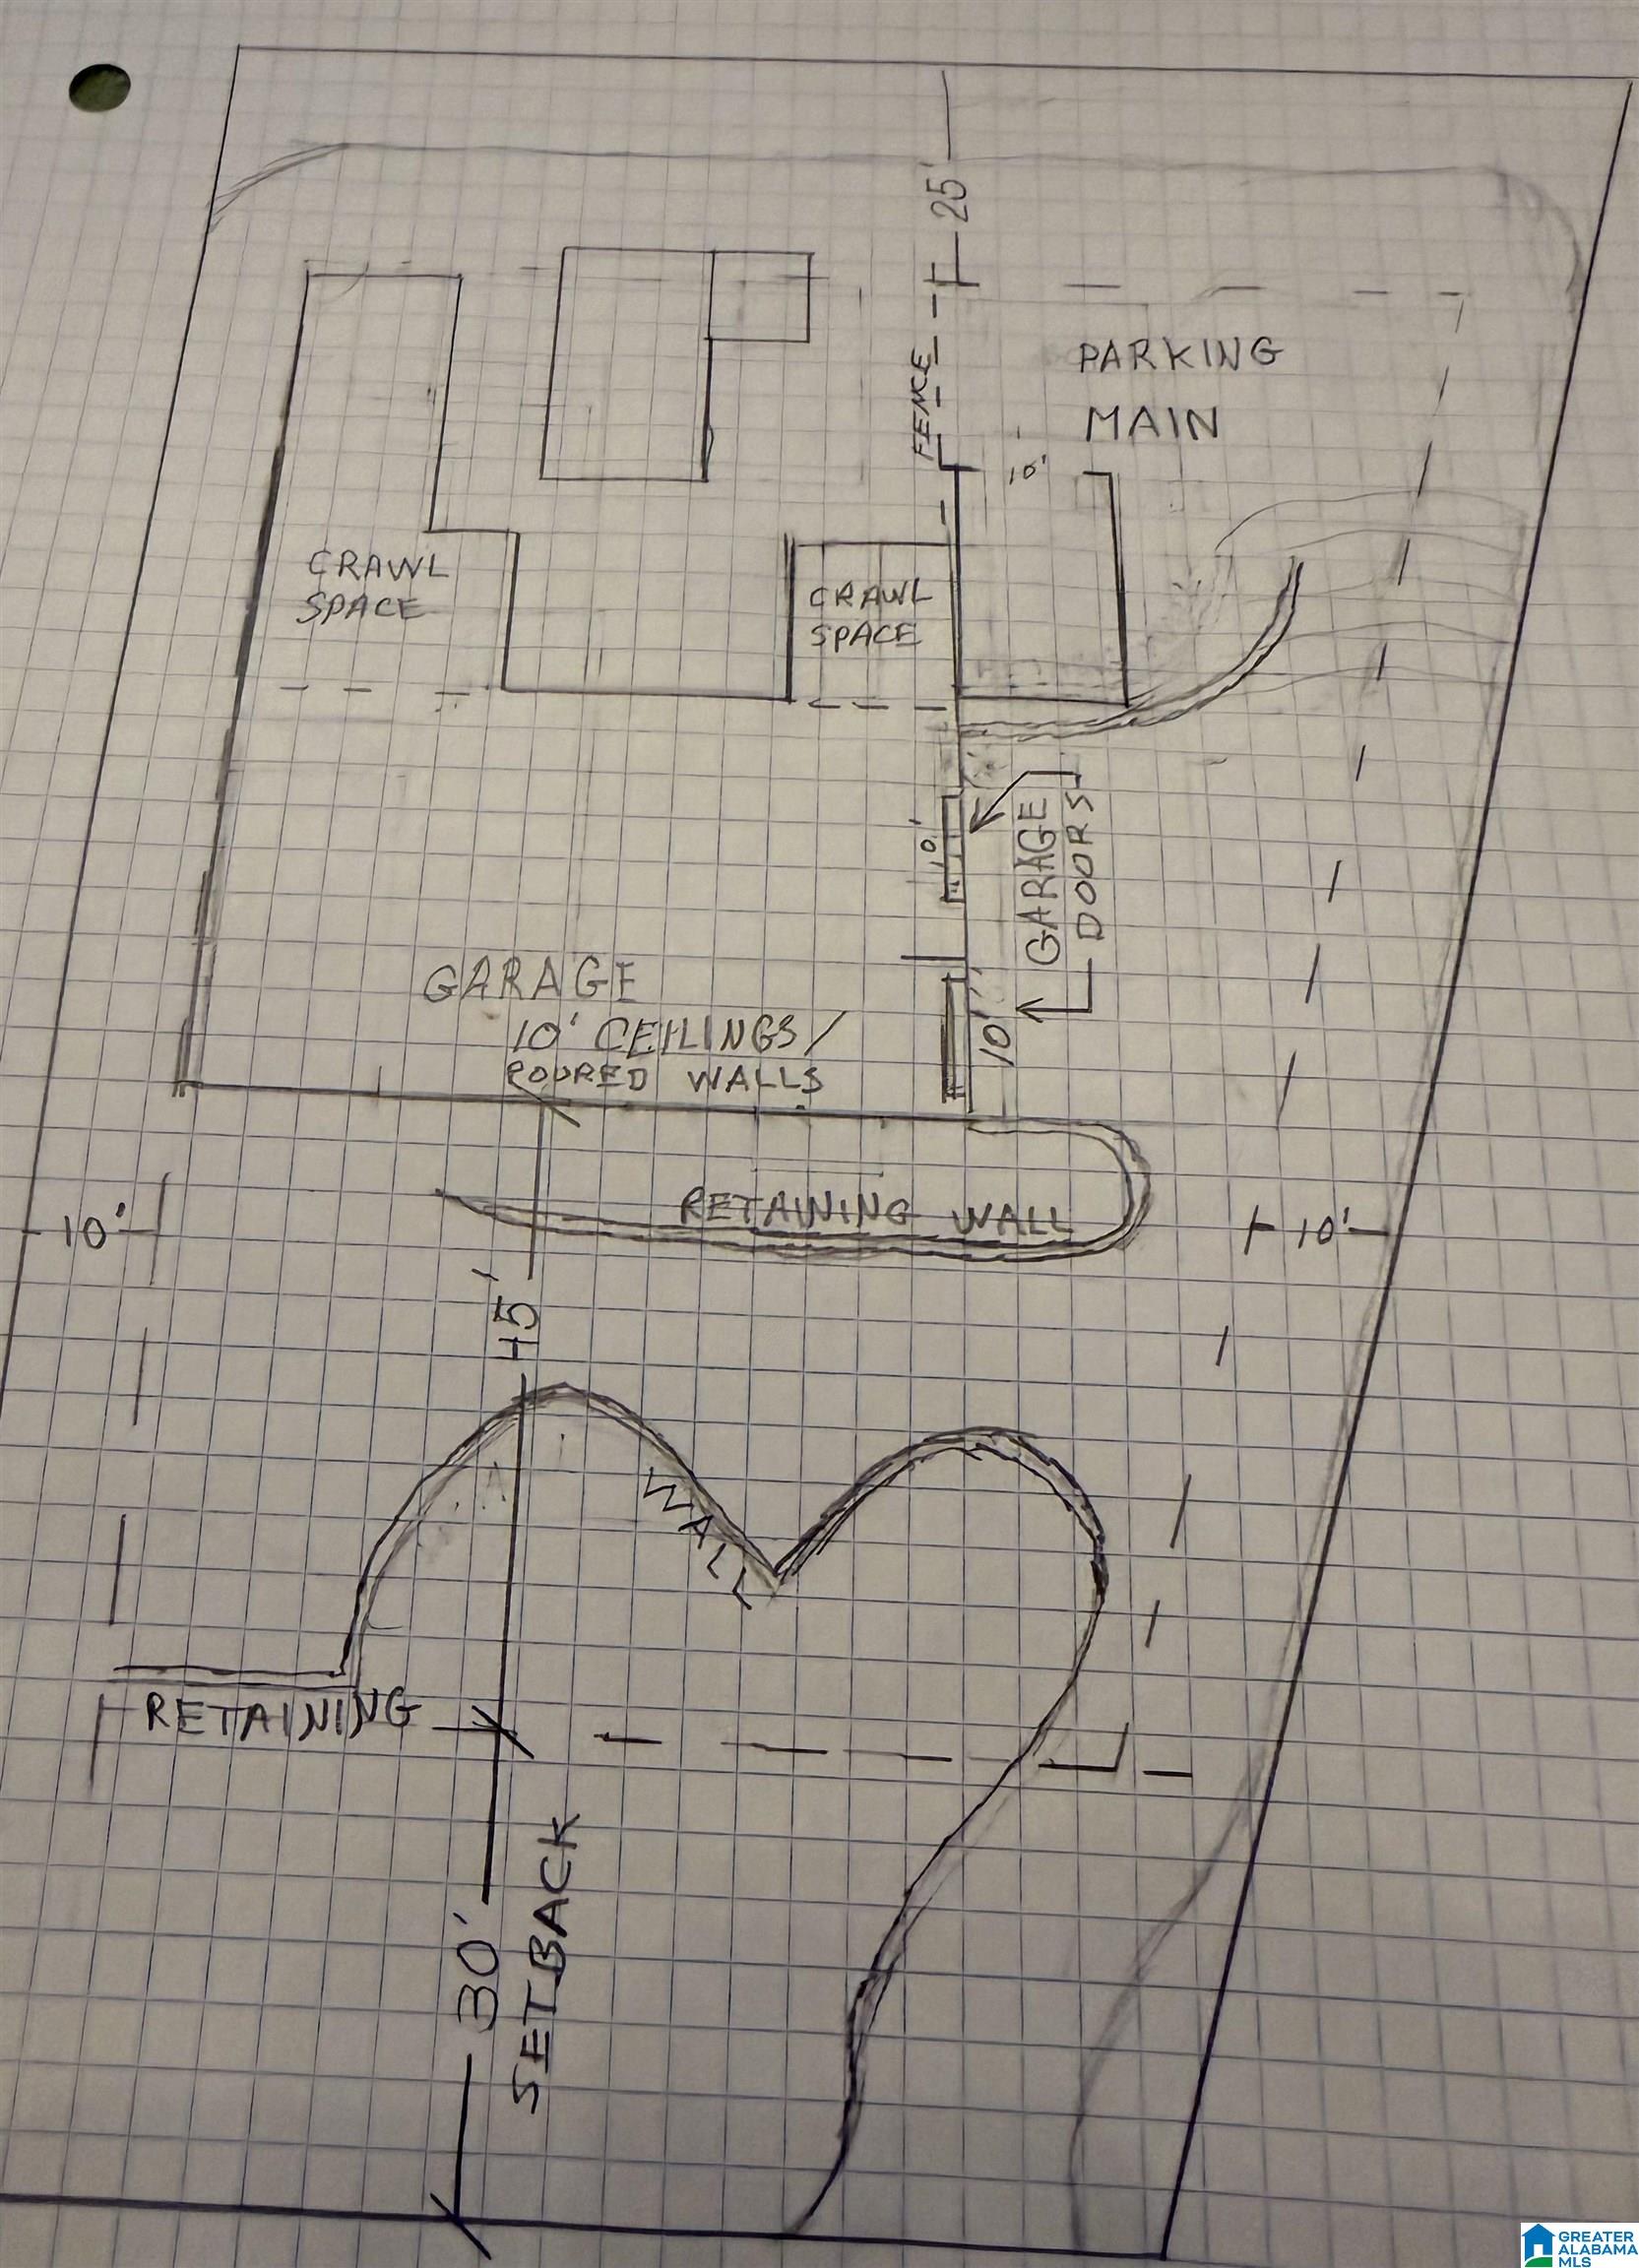 25'
FENCE
PARKING
MAIN
10'
CRAWL
SPACE
CRAWL
SPACE
10'
GARAGE
DOORS
10'
GARAGE
10' CEILINGS/
POURED WALLS
RETAINING WALL
10'
10'
45'
WALL
RETAINING
30'
SETBACK
GREATER
ALABAMA
MLS